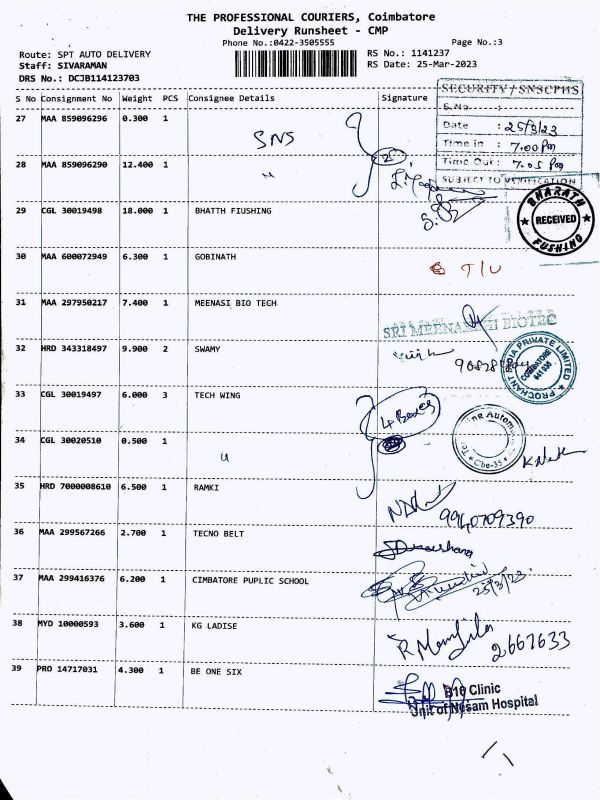 THE PROFESSIONAL COURIERS, Coimbatore
Delivery Runsheet - CMP
Phone No.:0422-3505555 Page No.:3
Route: SPT AUTO DELIVERY RS No.: 1141237
Staff: SIVARAMAN RS Date: 25-Mar-2023
DRS No.: DCJB114123703
SECURITY / SNSCPHS
S.No. :
Date : 25/3/23
Time in : 7.00 Pm
Time Out : 7.05 Pm
SUBJECT TO VERIFICATION
S No Consignment No Weight PCS Consignee Details Signature
27 MAA 859096296 0.300 1 SNS
28 MAA 859096290 12.400 1 "
29 CGL 30019498 18.000 1 BHATTH FIUSHING
BHARATH RECEIVED FUSHING
30 MAA 600072949 6.300 1 GOBINATH T/U
31 MAA 297950217 7.400 1 MEENASI BIO TECH
SRI MEENAKSHI BIOTEC
32 HRD 343318497 9.900 2 SWAMY
PROCHANT INDIA PRIVATE LIMITED COIMBATORE
33 CGL 30019497 6.000 3 TECH WING 4 Boxes
34 CGL 30020510 0.500 1 "
Cbe-35
35 HRD 7000008610 6.500 1 RAMKI
9940709390
36 MAA 299567266 2.700 1 TECNO BELT
37 MAA 299416376 6.200 1 CIMBATORE PUPLIC SCHOOL
25/3/23
38 MYD 10000593 3.600 1 KG LADISE
2667633
39 PRO 14717031 4.300 1 BE ONE SIX
B16 Clinic
Unit of Nesam Hospital